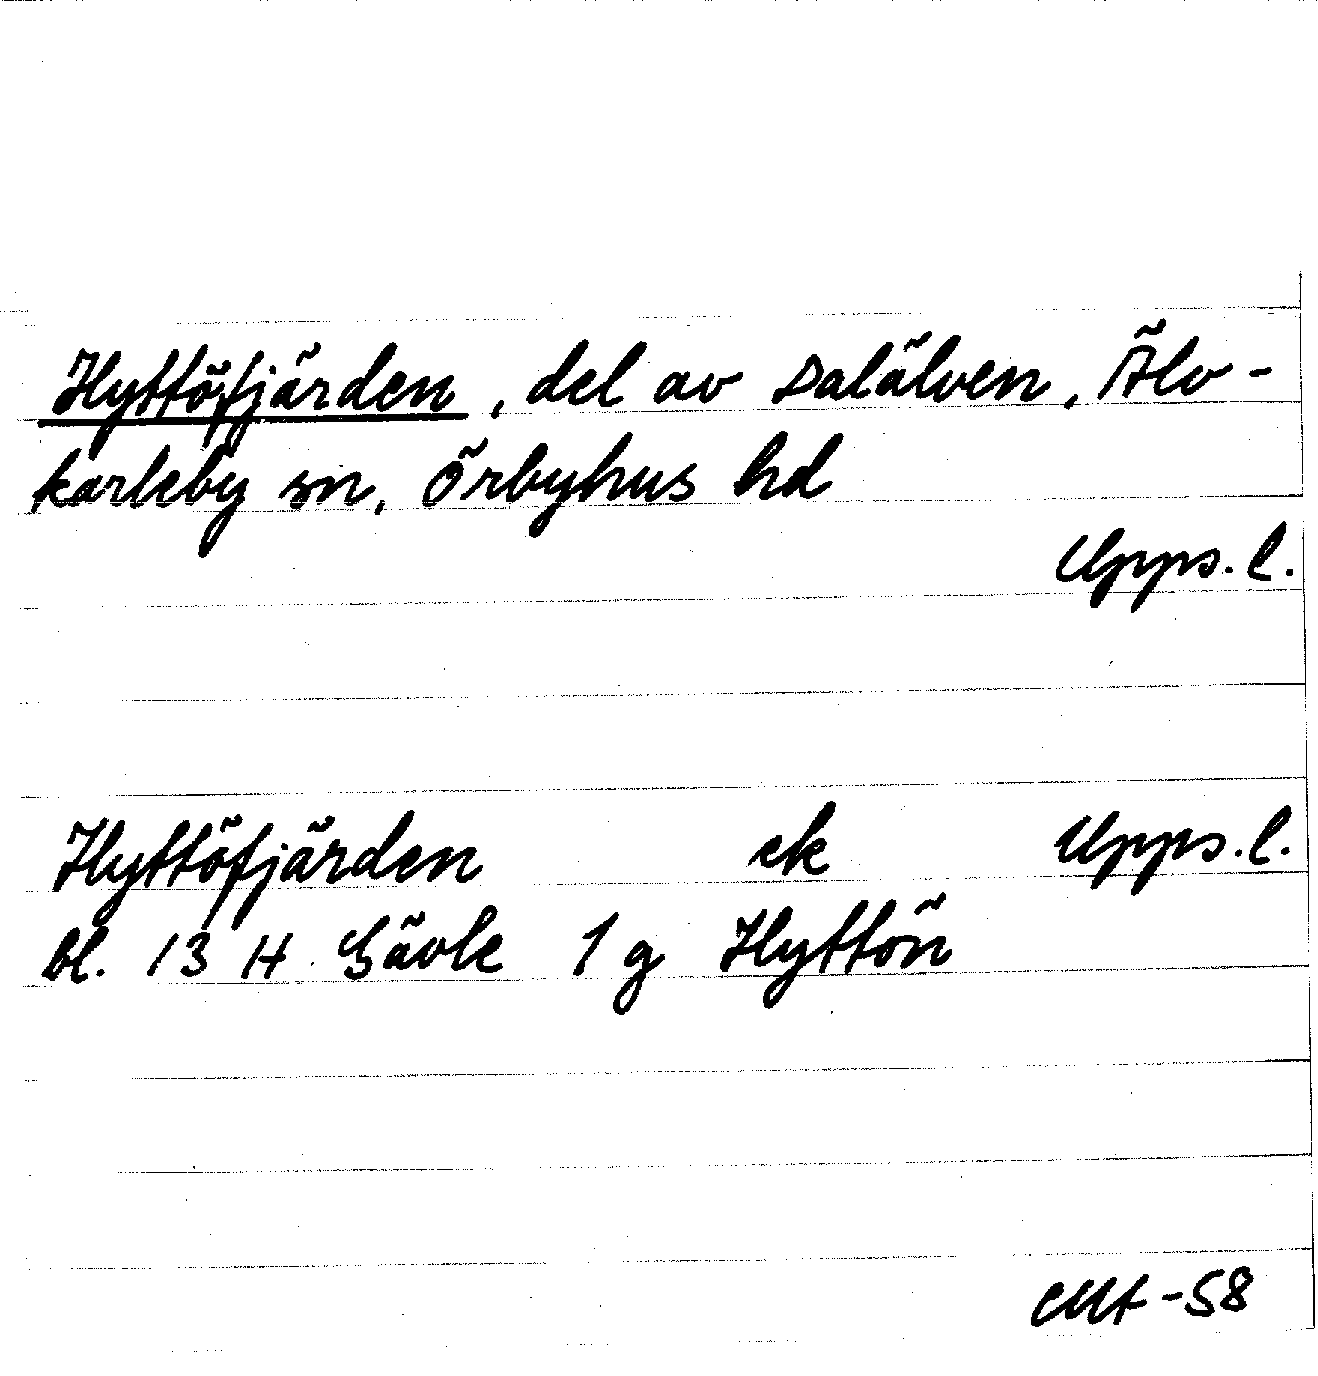 Hyttöfjärden, del av Dalälven, Älv-
karleby sn, Örbyhus hd
Upps. l.
Hyttöfjärden ek Upps. l.
bl. 13 H Gävle 1 g Hyttön
-58